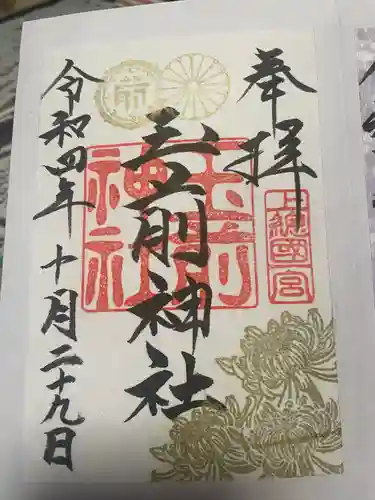 奉拝
上総國一宮
玉前神社
玉前神社
令和四年十月二十九日